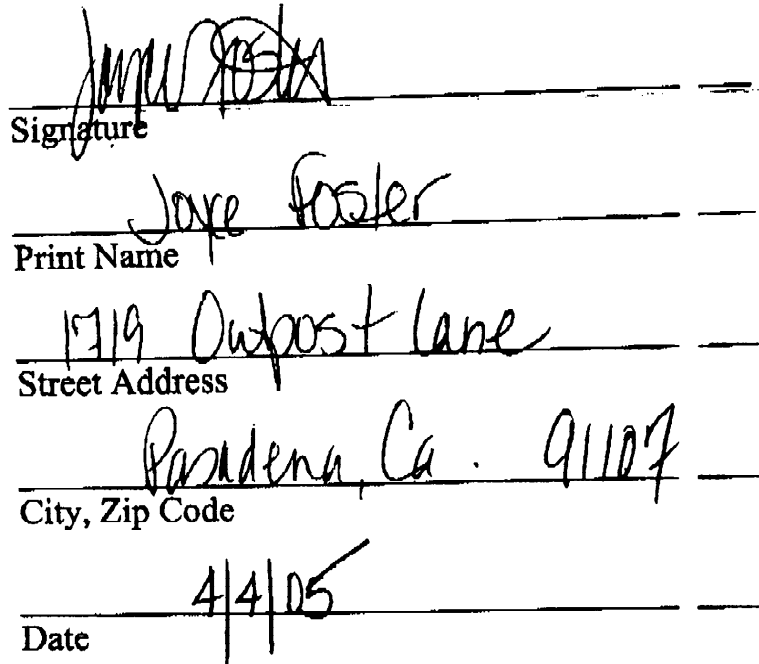 Joyce Foster
Signature
Joyce Foster
Print Name
1719 Outpost Lane
Street Address
Pasadena, Ca. 91107
City, Zip Code
4/4/05
Date